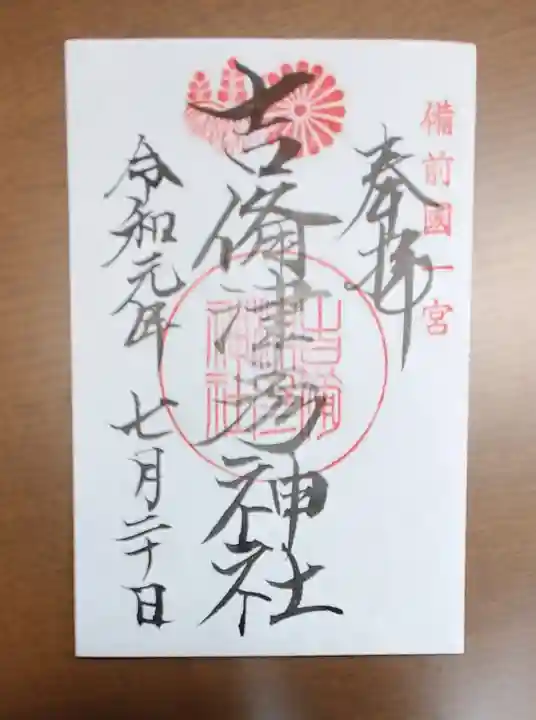 備前國一宮
奉拝
吉備津彦神社
令和元年 七月二十日
吉備
神社